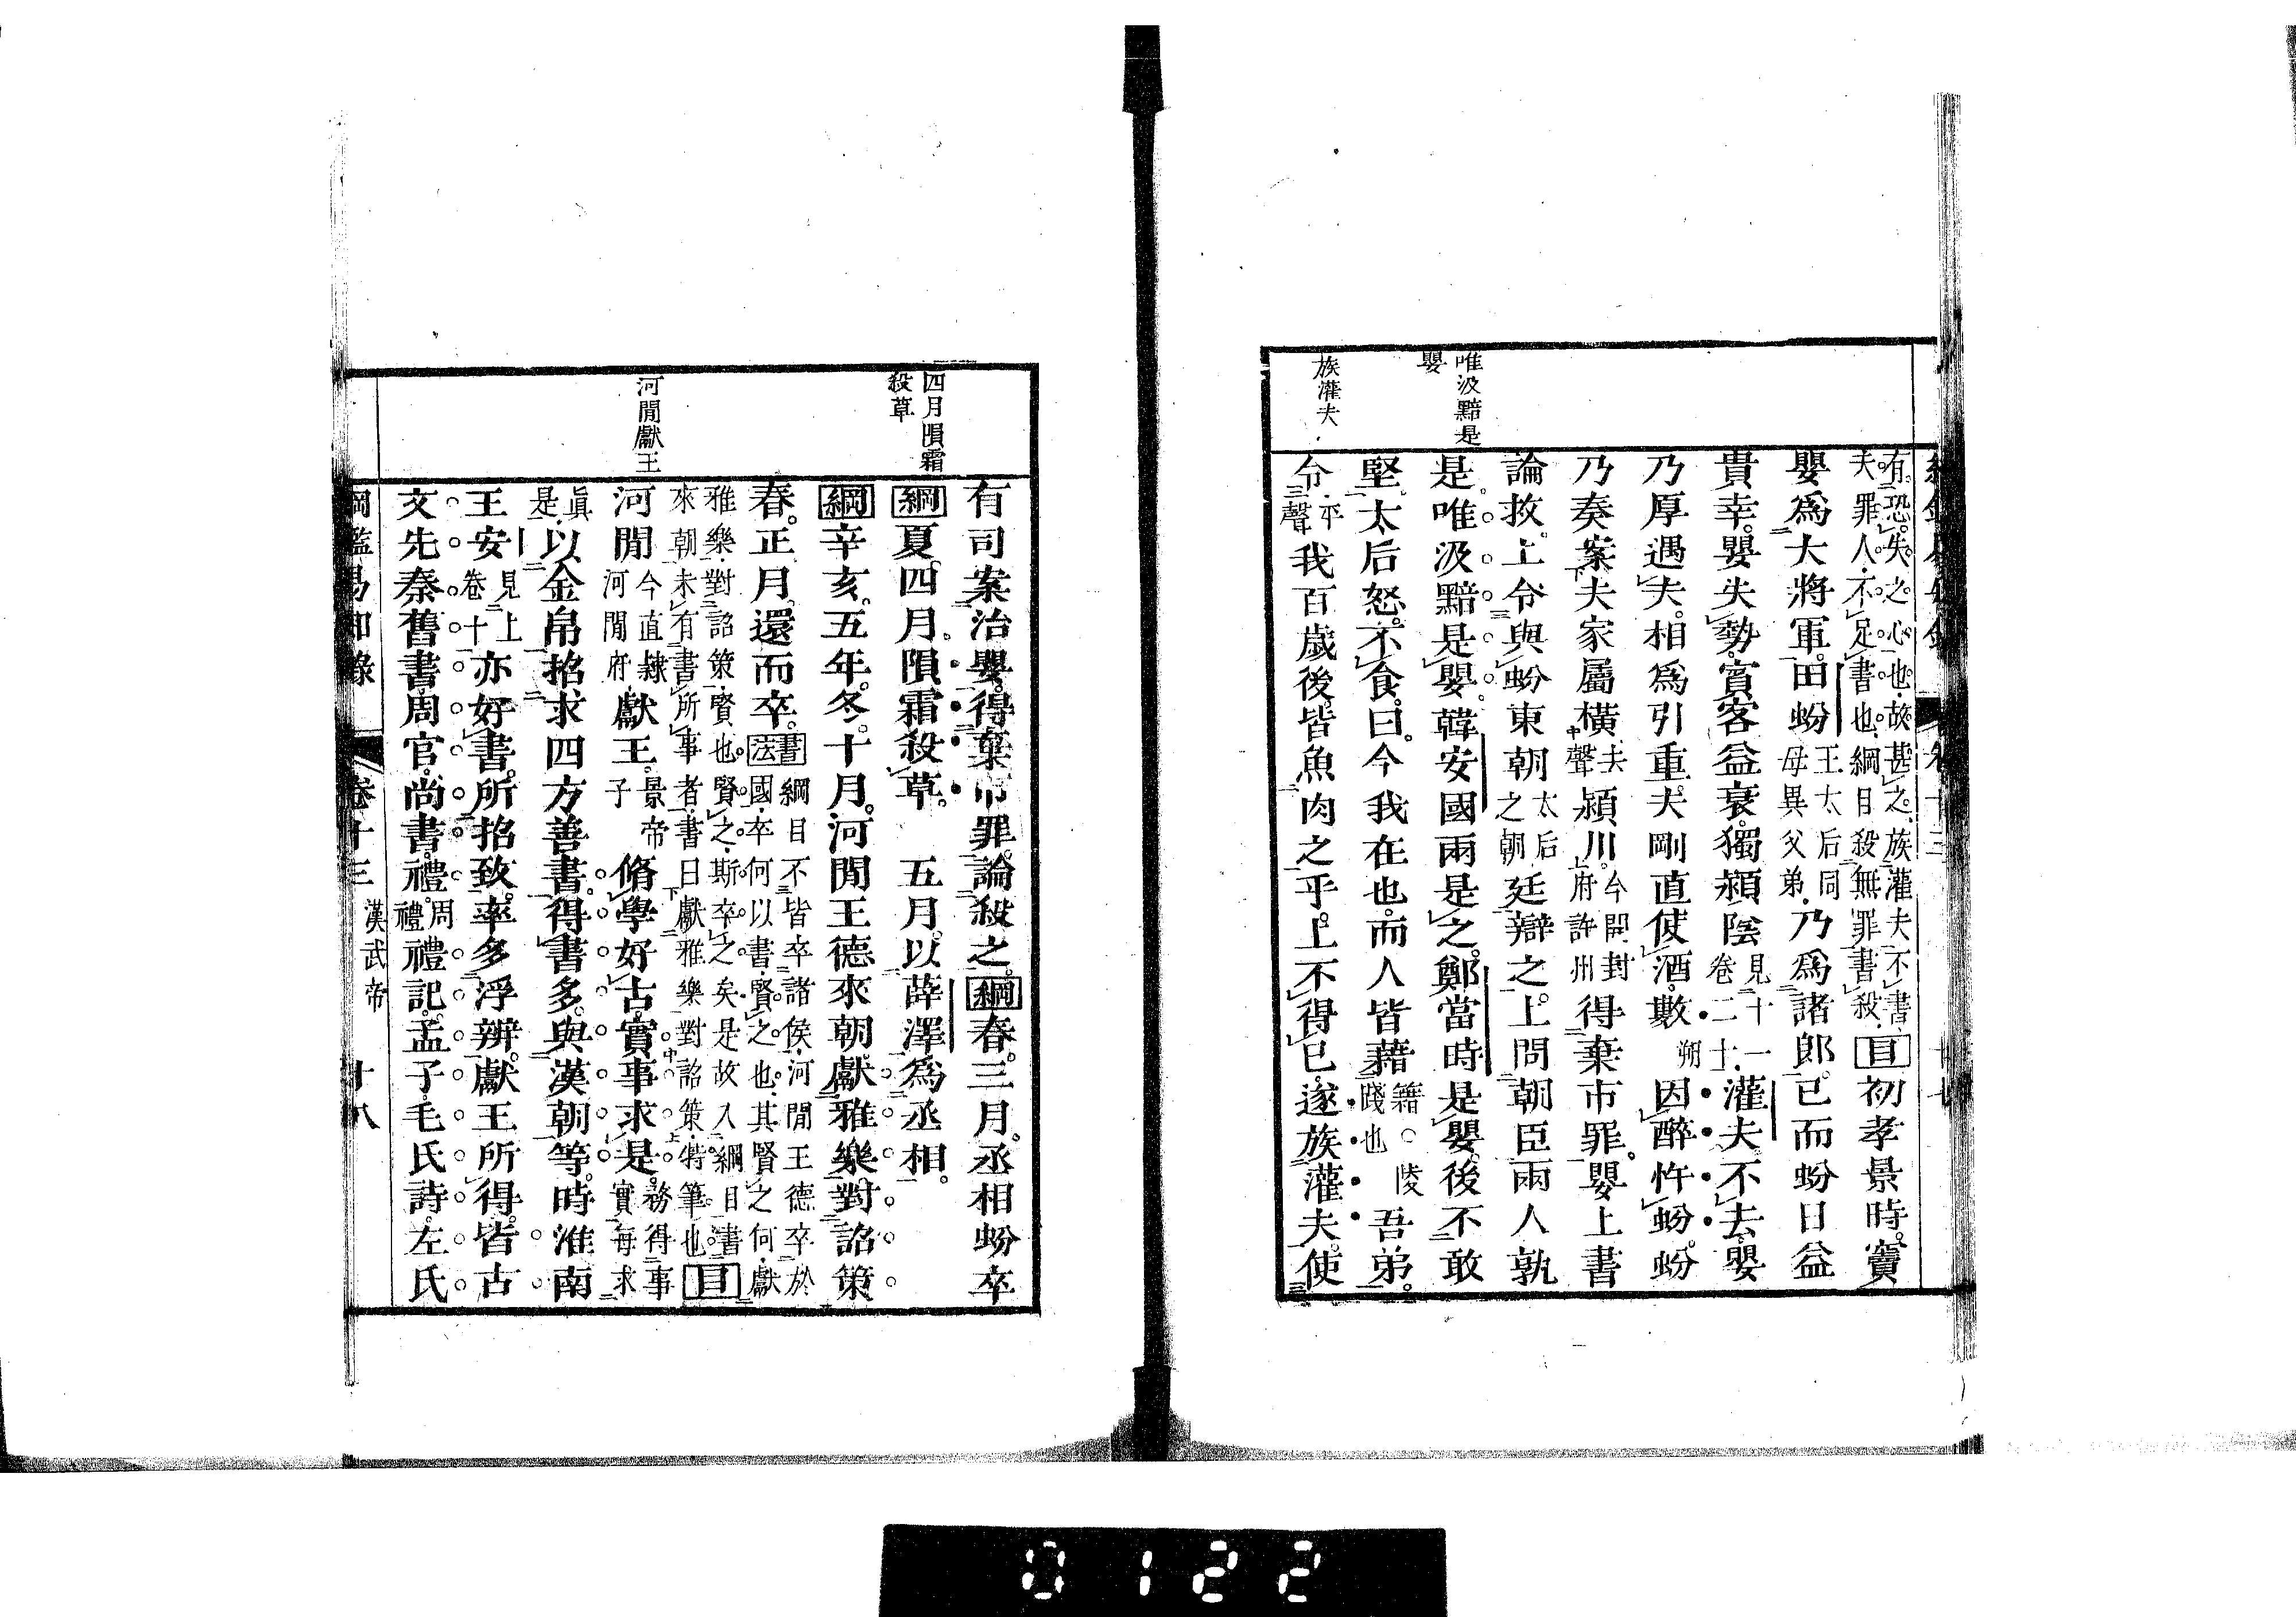 唯汲黯是
嬰
族灌夫
有恐失之心也故甚之族灌夫不書
夫罪人不足書也綱目殺無罪書殺目初孝景時竇
嬰爲大將軍田蚡王太后同母異父弟乃爲諸郎已而蚡日益
貴幸嬰失勢賓客益衰獨潁陰見十一卷二十灌夫不去嬰
乃厚遇夫相爲引重夫剛直使酒數朔因醉忤蚡蚡
乃奏案夫家屬橫去聲潁川今開封府許州得棄市罪嬰上書
論救上令與蚡東朝太后之朝廷辯之上問朝臣兩人孰
是唯汲黯是嬰韓安國兩是之鄭當時是嬰後不敢
堅太后怒不食曰今我在也而人皆藉籍○踐也陵吾弟
令平聲我百歲後皆魚肉之乎上不得已遂族灌夫使
四月隕霜
殺草
河閒獻王
有司案治嬰得棄市罪論殺之綱春三月丞相蚡卒
綱夏四月隕霜殺草　五月以薛澤爲丞相
綱辛亥五年冬十月河閒王德來朝獻雅樂對詔策
春正月還而卒書法綱目不皆卒諸侯河閒王德卒於國卒何以書賢之也其賢之何獻
雅樂對詔策賢也賢之斯卒之矣是故入綱目書
來朝未有書所事者書曰獻雅樂對詔策特筆也目
河閒今直隸河閒府獻王景帝子脩學好古實事求是務得事實每求
眞是以金帛招求四方善書得書多與漢朝等時淮南
王安見上卷十一亦好書所招致率多浮辨獻王所得皆古
文先秦舊書周官尚書禮周禮禮記孟子毛氏詩左氏
綱鑑易知錄　卷十三　漢武帝　十八